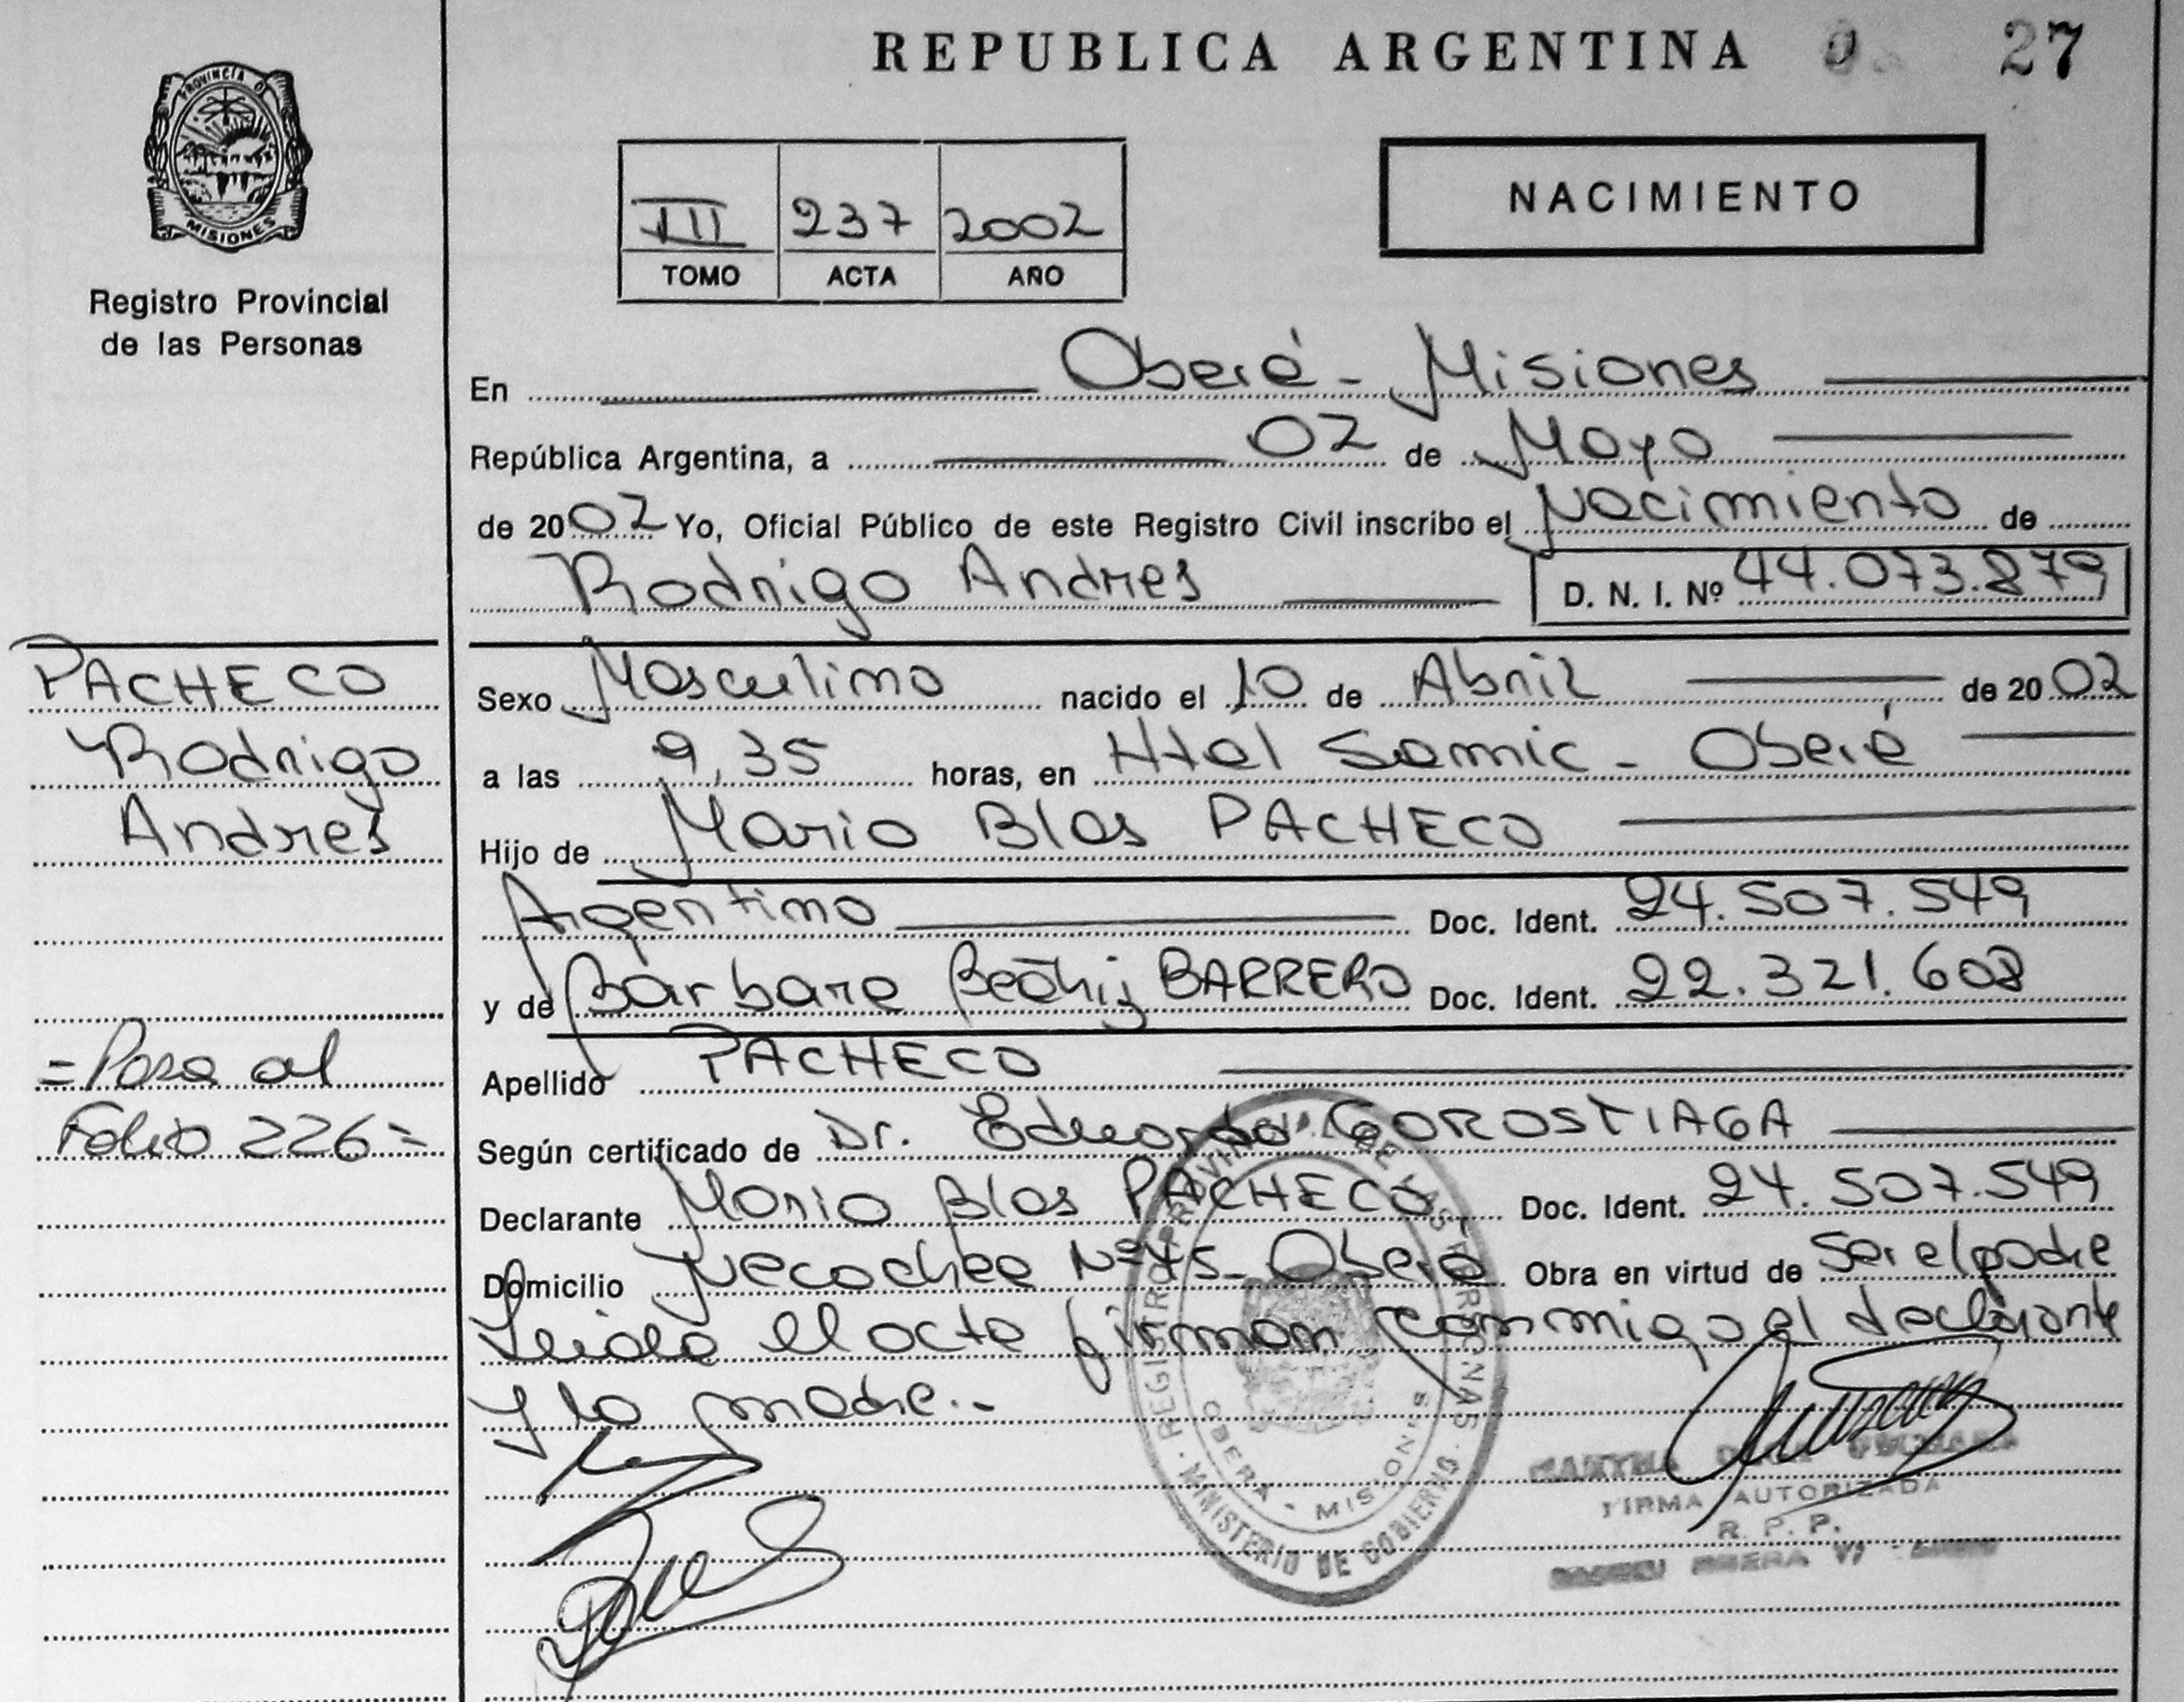 REPUBLICA ARGENTINA 27
PROVINCIA DE
MISIONES
Registro Provincial
de las Personas
III 237 2002
TOMO ACTA AÑO
NACIMIENTO
En Oberá - Misiones
República Argentina, a 02 de Mayo
de 2002 Yo, Oficial Público de este Registro Civil inscribo el Nacimiento de
Rodrigo Andres D. N. I. Nº 44.073.879
PACHECO
Rodrigo
Andres
= Pasa al
Folio 226 =
Sexo Masculino nacido el 10 de Abril de 2002
a las 9,35 horas, en Htal Samic - Oberá
Hijo de Mario Blas PACHECO
Argentino Doc. Ident. 24.507.549
y de Barbara Beatriz BARRERO Doc. Ident. 22.321.608
Apellido PACHECO
Según certificado de Dr. Eduardo GOROSTIAGA
Declarante Mario Blas PACHECO Doc. Ident. 24.507.549
Domicilio Necochea Nº 45 - Oberá Obra en virtud de ser el padre
Leida el acta firman conmigo el declarante
y la madre.-
REGISTRO PROVINCIAL DE LAS PERSONAS
OBERA - MISIONES
MINISTERIO DE GOBIERNO
FIRMA AUTORIZADA
R. P. P.